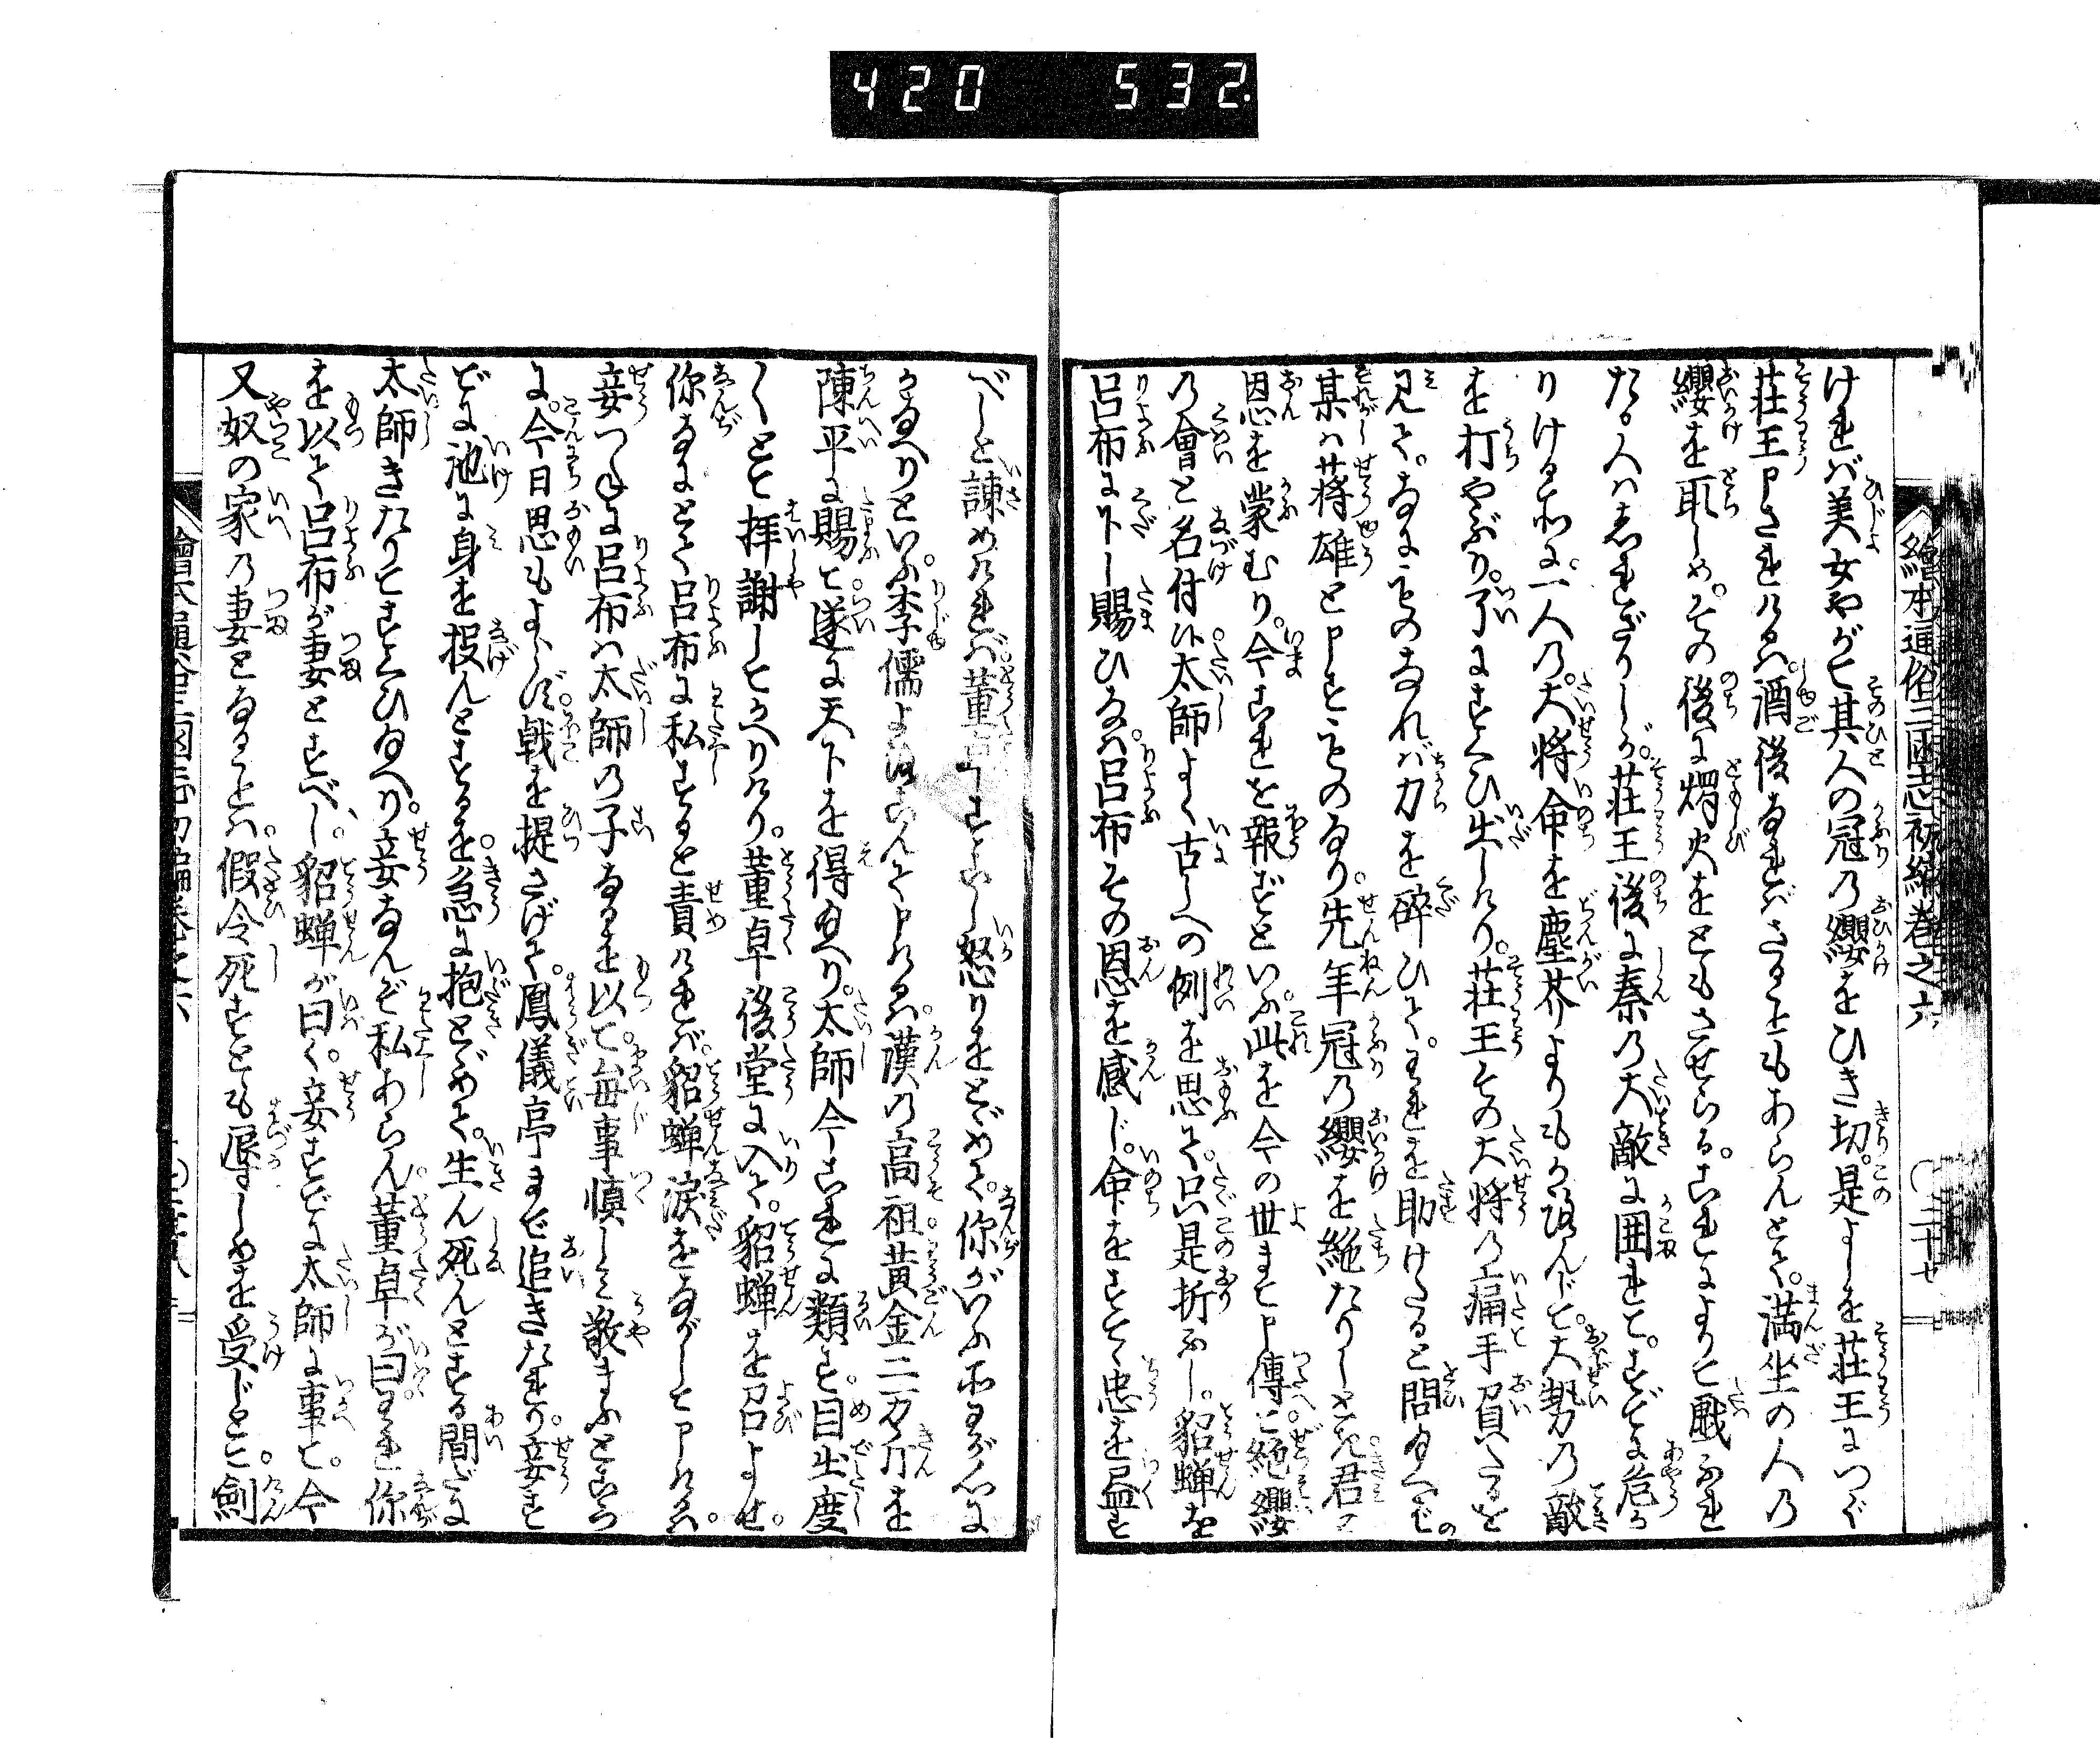 420 532.
繪本通俗三國志初編巻之六 ○三十七
ければ美女やがて其人の冠の纓をひき切。是よしを荘王につぐ
荘王申されけるは。酒後なればさることもあらんとて。満坐の人の
纓を取しめ。その後に燭火をともさせらる。これによりて戯ふれ
た。人はしれざりしが。荘王後に秦の大敵に囲れて。すでに危か
りける所に。一人の。大将命を塵芥よりもかろんじて。大勢の敵
を打やぶり。了にすくひ出しけり。荘王その大将の痛手負たるを
見て。なにものなれば力を砕ひて。われを助けたると問給へば
某は蒋雄と申すものなり。先年冠の纓を絶たりしとき君の
恩を蒙むり。今これを報ずといふ。此を今の世まで申傳て絶纓
の會と名付は太師よく古しへの例を思て。只是折ふし。貂蝉を
呂布に下し賜ひなば。呂布その恩を感じ。命をすてて忠を尽す
べしと諫めければ。董卓すこし怒りをとどめて。你がいふ所わが心に
かなへりといふ。李儒よろこんで申けるは。漢の高祖。黄金二万斤を
陳平に賜て。遂に天下を得給へり。太師今これに類す。目出度
しとて拝謝してかへりけり。董卓後堂に入て。貂蝉を召よせ。
你なにとて呂布に私すると責ければ。貂蝉涙をながして申けるは。
妾つねに呂布は太師の子なるを以て。毎事慎しみ敬まふところ
に。今日思もよらず。戟を提さげて。鳳儀亭まで追きたれり。妾す
でに池に身を投んとするを。急に抱とどめて。生ん死んとする間だに
太師きたりてすくひ給へり。妾なんぞ私あらん。董卓が曰。われ你
を以て呂布が妻とすべし。貂蝉が曰く。妾すでに太師に事て。今
又奴の家の妻となることは。假令死すとも辱しめを受じとて。劍